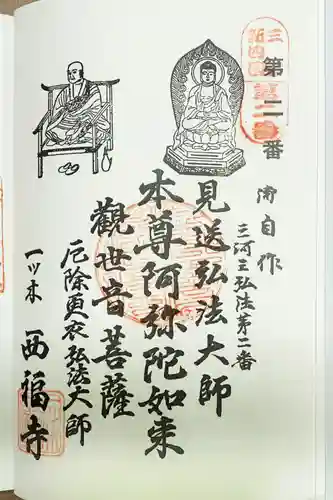 三河新四国
第二番
第二番
御自作
三河三弘法第二番
見送弘法大師
本尊阿弥陀如来
觀世音菩薩
厄除更衣弘法大師
一ツ木
西福寺